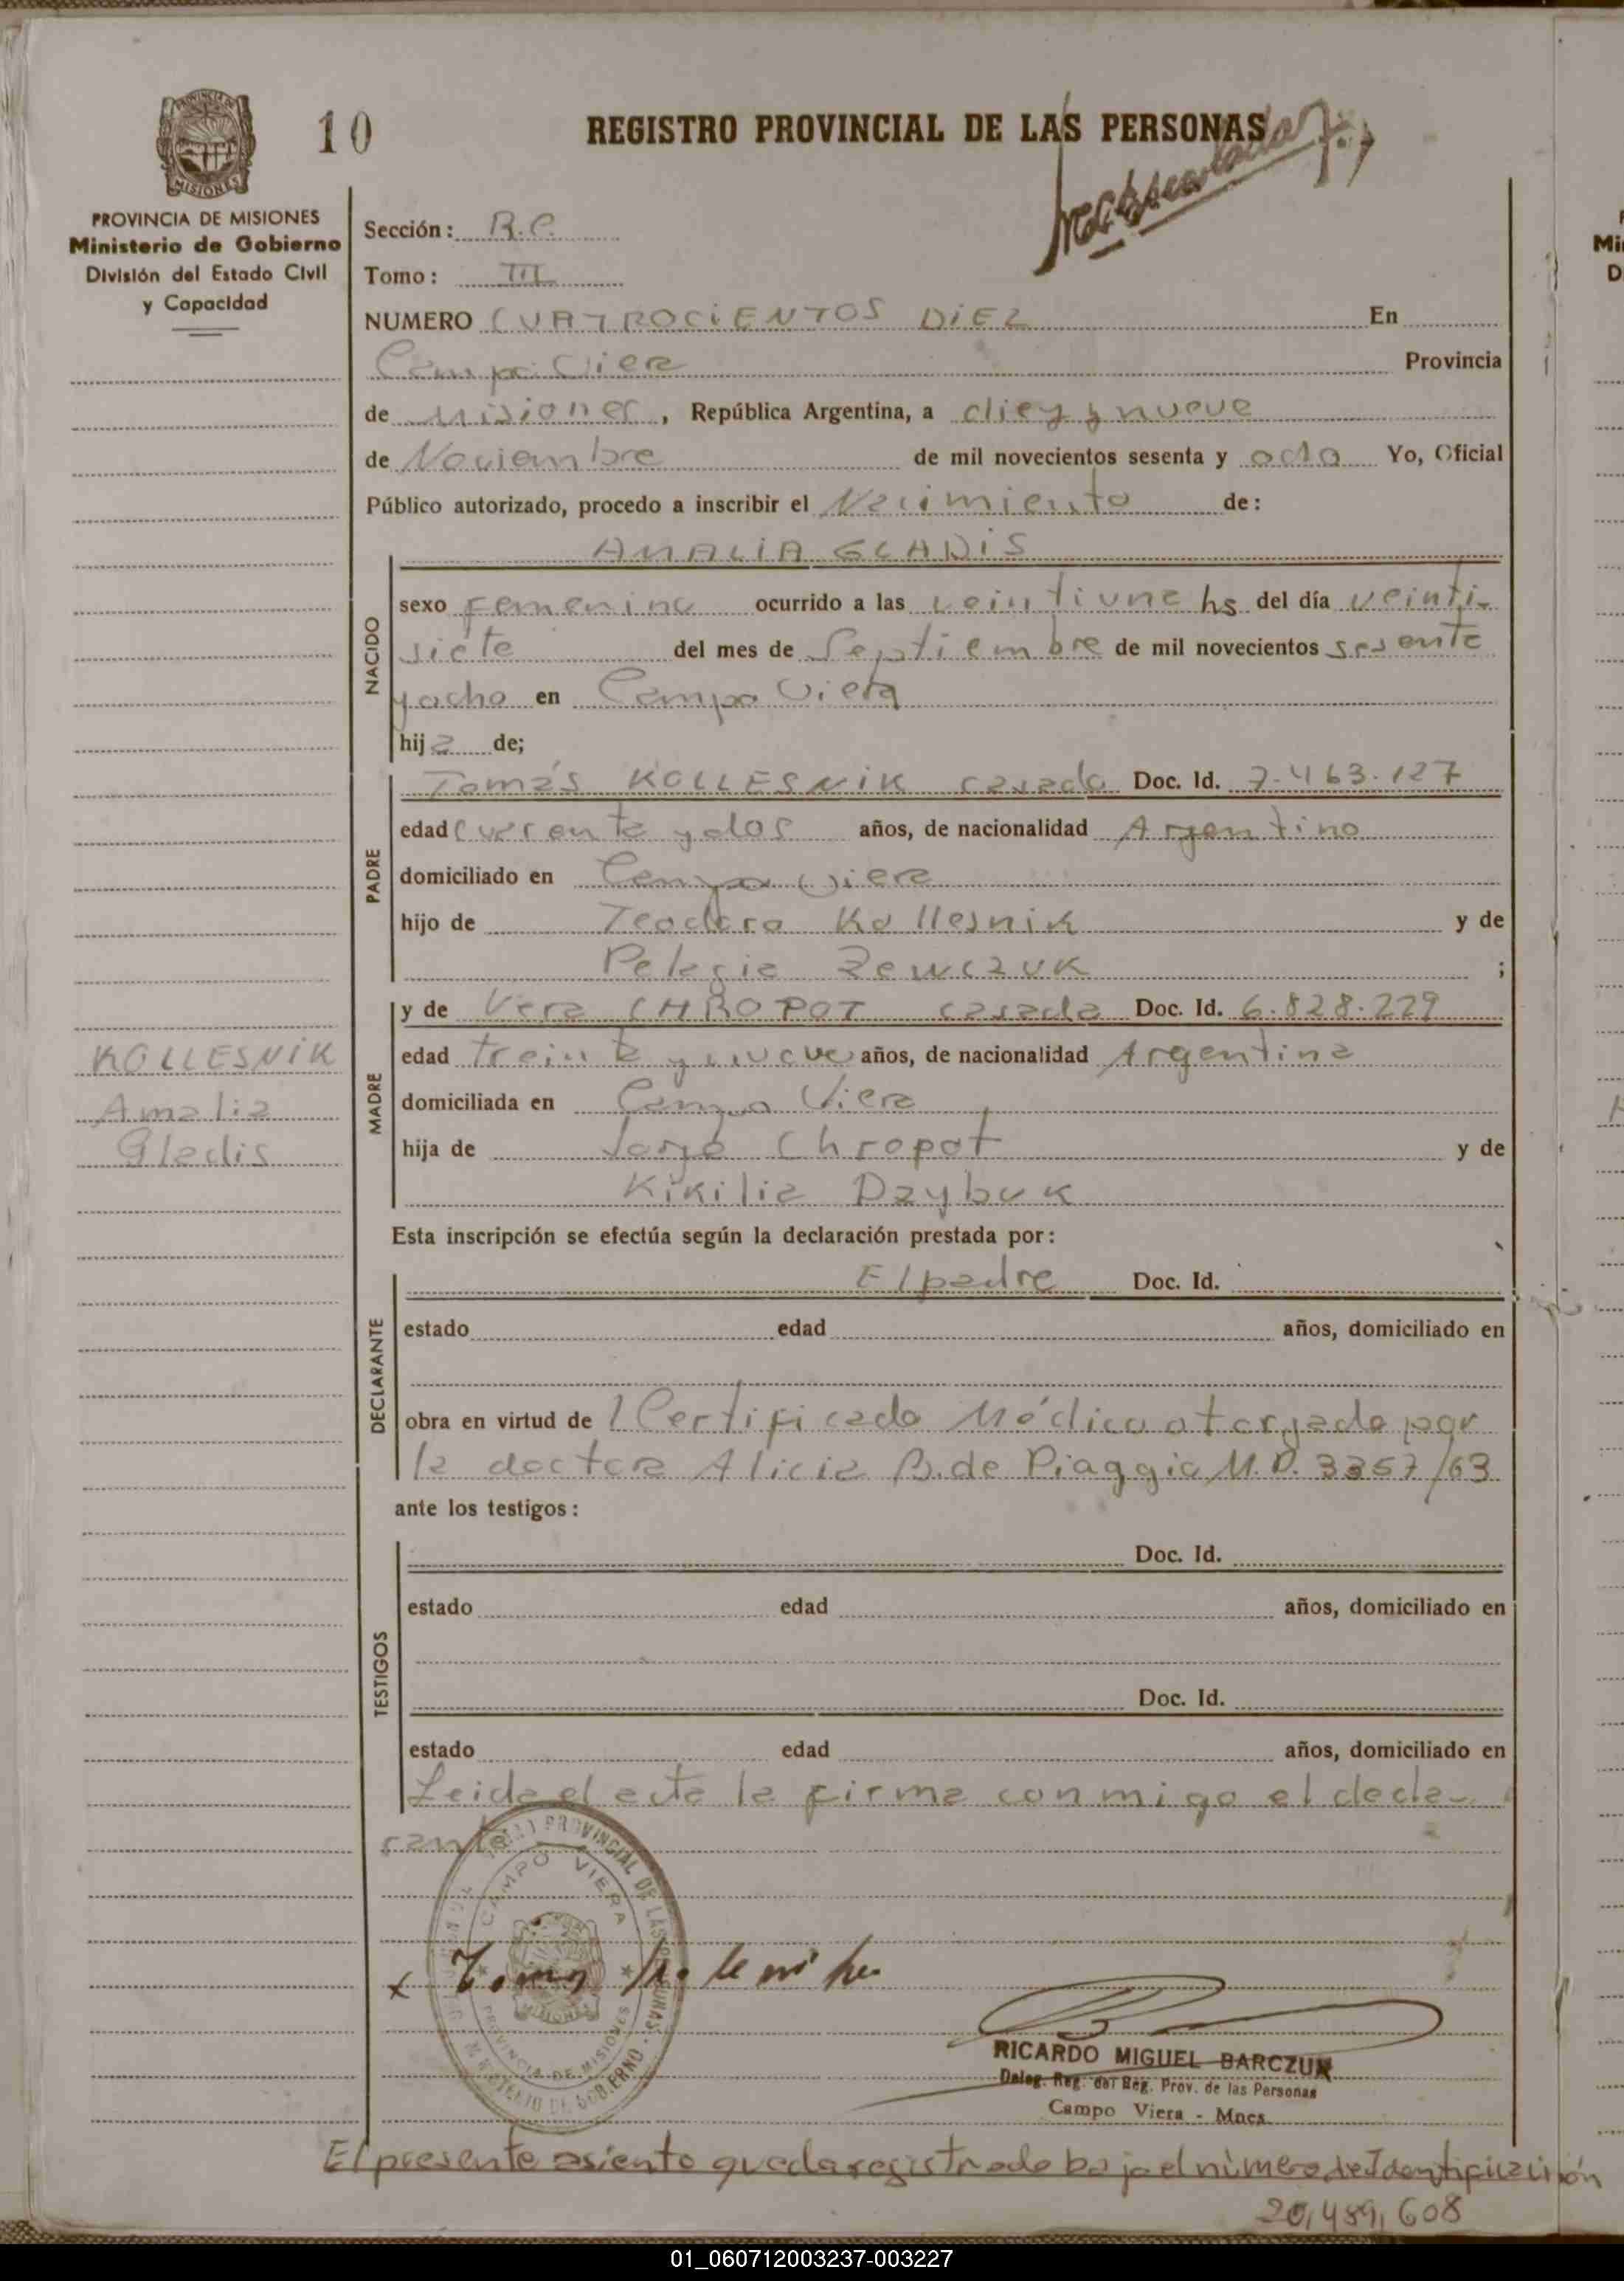 10
REGISTRO PROVINCIAL DE LAS PERSONAS
PROVINCIA DE MISIONES
Ministerio de Gobierno
División del Estado Civil
y Capacidad
Sección: R.C.
Tomo: III
NUMERO CUATROCIENTOS DIEZ En
Campo Viera Provincia
de Misiones, República Argentina, a diez y nueve
de Noviembre de mil novecientos sesenta y ocho Yo, Oficial
Público autorizado, procedo a inscribir el Nacimiento de:
AMALIA GLADIS
NACIDO
sexo femenino ocurrido a las veintiuna hs del día veinti-
siete del mes de Septiembre de mil novecientos sesenta
y ocho en Campo Viera
hija de;
PADRE
Tomás KOLLESNIK casado Doc. Id. 7.463.127
edad cuarenta y dos años, de nacionalidad Argentino
domiciliado en Campo Viera
hijo de Teodoro Kollesnik y de
Pelagia Zewczuk ;
MADRE
y de Vera CHROPOT casada Doc. Id. 6.828.229
edad treinta y nueve años, de nacionalidad Argentina
domiciliada en Campo Viera
hija de Jorge Chropot y de
Kikilia Dzybuk
KOLLESNIK
Amalia
Gladis
Esta inscripción se efectúa según la declaración prestada por:
DECLARANTE
El padre Doc. Id.
estado edad años, domiciliado en
obra en virtud de l Certificado Médico otorgado por
la doctora Alicia B. de Piaggio M.P. 3357/63
ante los testigos:
TESTIGOS
Doc. Id.
estado edad años, domiciliado en
Doc. Id.
estado edad años, domiciliado en
Leida el acta la firma conmigo el decla-
rante
PROVINCIAL DE LAS PERSONAS
CAMPO VIERA
MISIONES
PROVINCIA DE MISIONES
MINISTERIO DE GOBIERNO
x Tomas
RICARDO MIGUEL BARCZUK
Deleg. Reg. del Reg. Prov. de las Personas
Campo Viera - Mnes
El presente asiento queda registrado bajo el número de Identificación
20,489,608
01_060712003237-003227